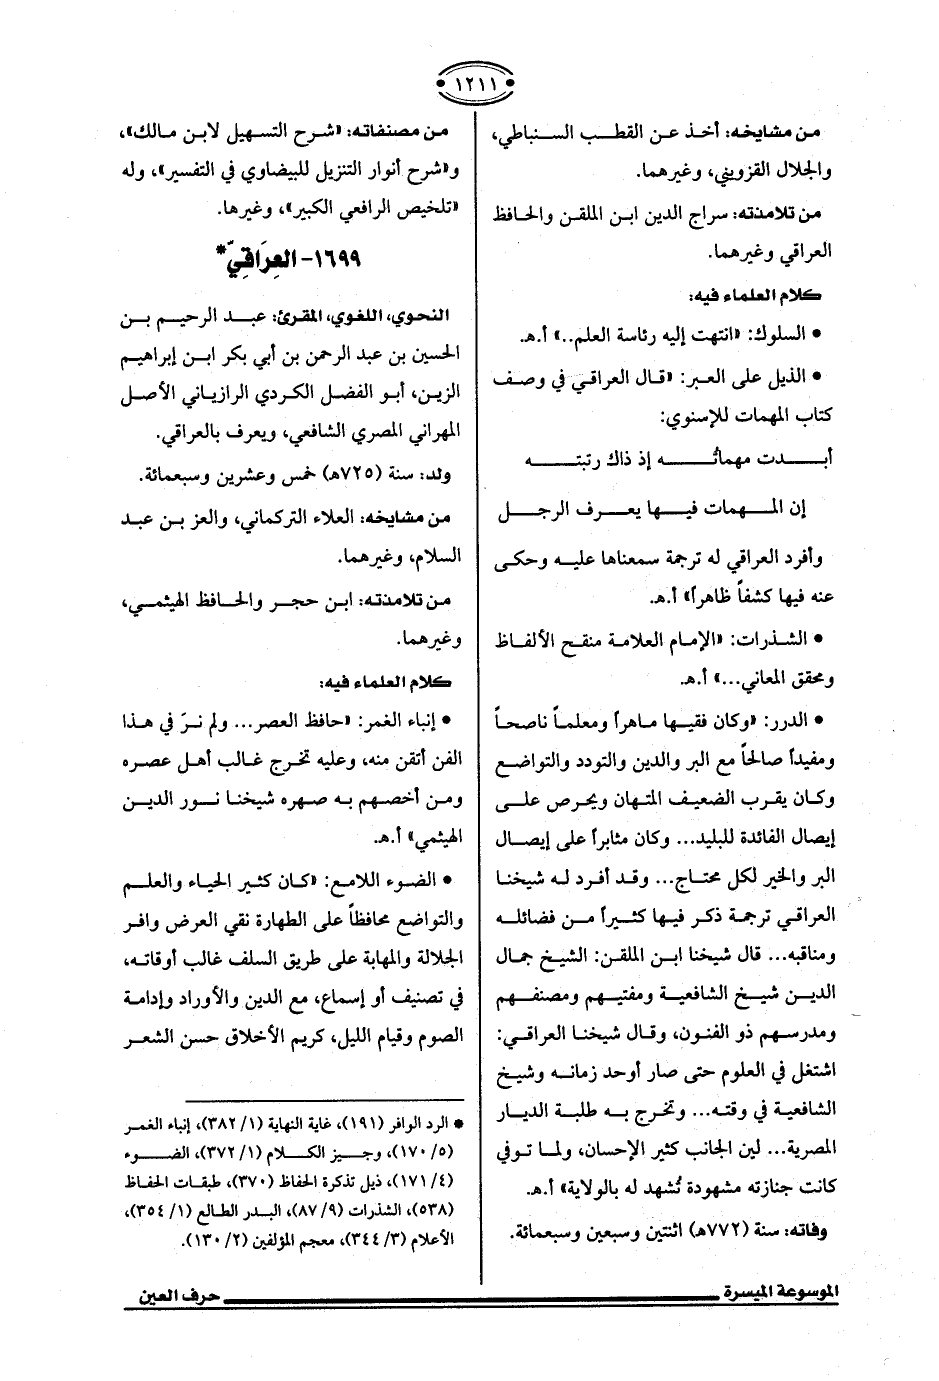 ١٢١١
من مشايخه: أخذ عن القطب السنباطي،
والجلال القزويني، وغيرهما.
من تلامذته: سراج الدين ابن الملقن والحافظ
العراقي وغيرهما.
كلام العلماء فيه:
• السلوك: «انتهت إليه رئاسة العلم..» أ.هـ.
• الذيل على العبر: «قال العراقي في وصف
كتاب المهمات للإسنوي:
أبدت مهماتُه إذ ذاك رتبته
إن المهمات فيها يعرف الرجل
وأفرد العراقي له ترجمة سمعناها عليه وحكى
عنه فيها كشفاً ظاهراً» أ.هـ.
• الشذرات: «الإمام العلامة منقح الألفاظ
ومحقق المعاني...» أ.هـ.
• الدرر: «وكان فقيهاً ماهراً ومعلماً ناصحاً
ومفيداً صالحاً مع البر والدين والتودد والتواضع
وكان يقرب الضعيف المتهان ويحرص على
إيصال الفائدة للبليد... وكان مثابراً على إيصال
البر والخير لكل محتاج... وقد أفرد له شيخنا
العراقي ترجمة ذكر فيها كثيراً من فضائله
ومناقبه... قال شيخنا ابن الملقن: الشيخ جمال
الدين شيخ الشافعية ومفتيهم ومصنفهم
ومدرسهم ذو الفنون، وقال شيخنا العراقي:
اشتغل في العلوم حتى صار أوحد زمانه وشيخ
الشافعية في وقته... وتخرج به طلبة الديار
المصرية... لين الجانب كثير الإحسان، ولما توفي
كانت جنازته مشهودة تُشهد له بالولاية» أ.هـ.
وفاته: سنة (٧٧٢هـ) اثنتين وسبعين وسبعمائة.
من مصنفاته: «شرح التسهيل لابن مالك»،
و«شرح أنوار التنزيل للبيضاوي في التفسير»، وله
«تلخيص الرافعي الكبير»، وغيرها.
١٦٩٩- العِرَاقِيّ*
النحوي، اللغوي، المقرئ: عبد الرحيم بن
الحسين بن عبد الرحمن بن أبي بكر ابن إبراهيم
الزين، أبو الفضل الكردي الرازياني الأصل
المهراني المصري الشافعي، ويعرف بالعراقي.
ولد: سنة (٧٢٥هـ) خمس وعشرين وسبعمائة.
من مشايخه: العلاء التركماني، والعز بن عبد
السلام، وغيرهما.
من تلامذته: ابن حجر والحافظ الهيثمي،
وغيرهما.
كلام العلماء فيه:
• إنباء الغمر: «حافظ العصر... ولم نرّ في هذا
الفن أتقن منه، وعليه تخرج غالب أهل عصره
ومن أخصهم به صهره شيخنا نور الدين
الهيثمي» أ.هـ.
• الضوء اللامع: «كان كثير الحياء والعلم
والتواضع محافظاً على الطهارة نقي العرض وافر
الجلالة والمهابة على طريق السلف غالب أوقاته،
في تصنيف أو إسماع، مع الدين والأوراد وإدامة
الصوم وقيام الليل، كريم الأخلاق حسن الشعر
* الرد الوافر (١٩١)، غاية النهاية (٣٨٢/١)، إنباء الغمر
(١٧٠/٥)، وجيز الكلام (٣٧٢/١)، الضوء
(١٧١/٤)، ذيل تذكرة الحفاظ (٣٧٠)، طبقات الحفاظ
(٥٣٨)، الشذرات (٨٧/٩)، البدر الطالع (٣٥٤/١)،
الأعلام (٣٤٤/٣)، معجم المؤلفين (١٣٠/٢).
الموسوعة الميسرة
حرف العين